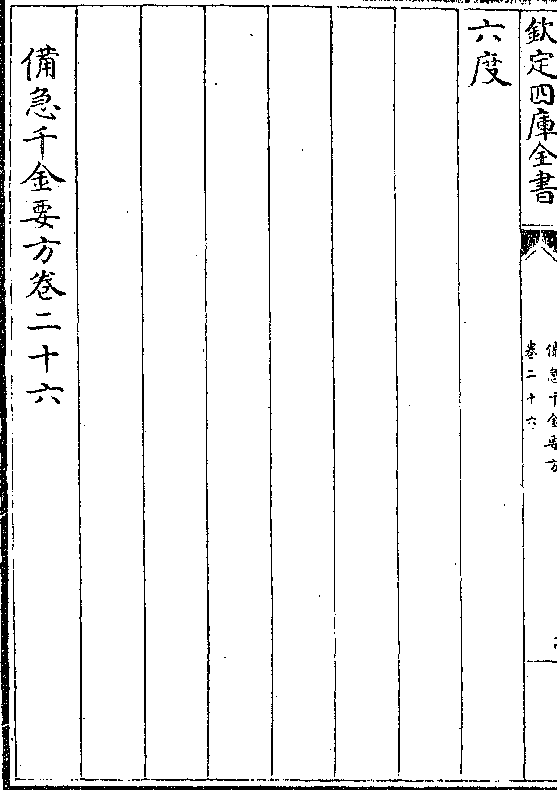 欽定四庫全書
備急千金要方
卷二十六
六度
備急千金要方卷二十六